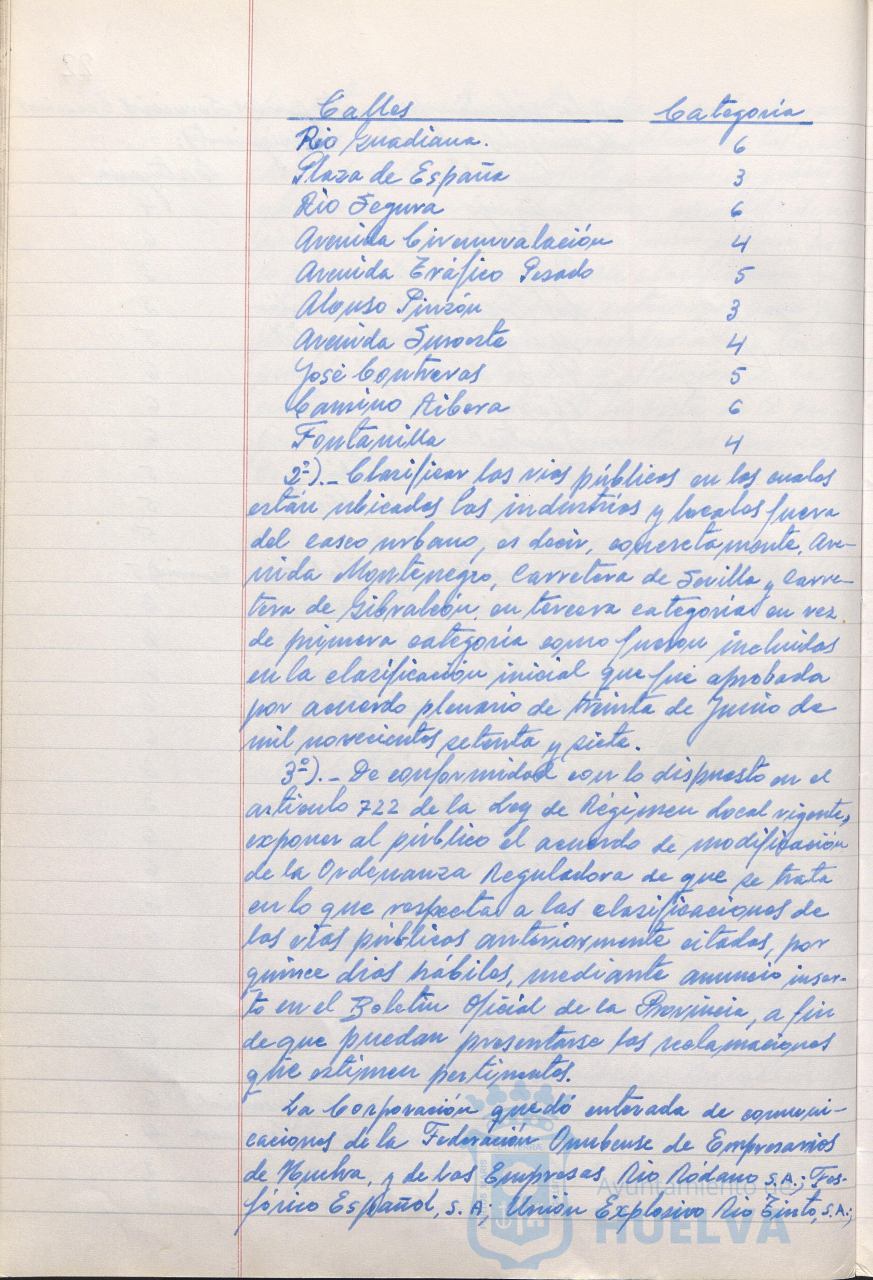 Calles Categoría
Rio Guadiana. 6
Plaza de España 3
Rio Segura 6
Avenida Circunvalación 4
Avenida Tráfico Pesado 5
Alonso Pinzón 3
Avenida Suroeste 4
José Contreras 5
Camino Ribera 6
Fontanilla 4
2º).- Clasificar las vias públicas en las cuales
están ubicadas las industrias y locales fuera
del casco urbano, es decir, concretamente, Ave-
nida Montenegro, Carretera de Sevilla y Carre-
tera de Gibraleón, en tercera categoría en vez
de primera categoría como fueron incluidas
en la clasificación inicial que fué aprobada
por acuerdo plenario de treinta de Junio de
mil novecientos setenta y siete.
3º).- De conformidad con lo dispuesto en el
artículo 722 de la Ley de Régimen Local vigente,
exponer al público el acuerdo de modificación
de la Ordenanza Reguladora de que se trata
en lo que respecta a las clasificaciones de
las vias públicas anteriormente citadas, por
quince dias hábiles, mediante anuncio inser-
to en el Boletín Oficial de la Provincia, a fin
de que puedan presentarse las reclamaciones
que estimen pertinentes.
La Corporación quedó enterada de comuni-
caciones de la Federación Onubense de Empresarios
de Huelva, y de las Empresas, Rio Ródano S.A.; Fos-
fórico Español, S. A; Unión Explosivo Rio Tinto, S.A.;
Ayuntamiento de
HUELVA